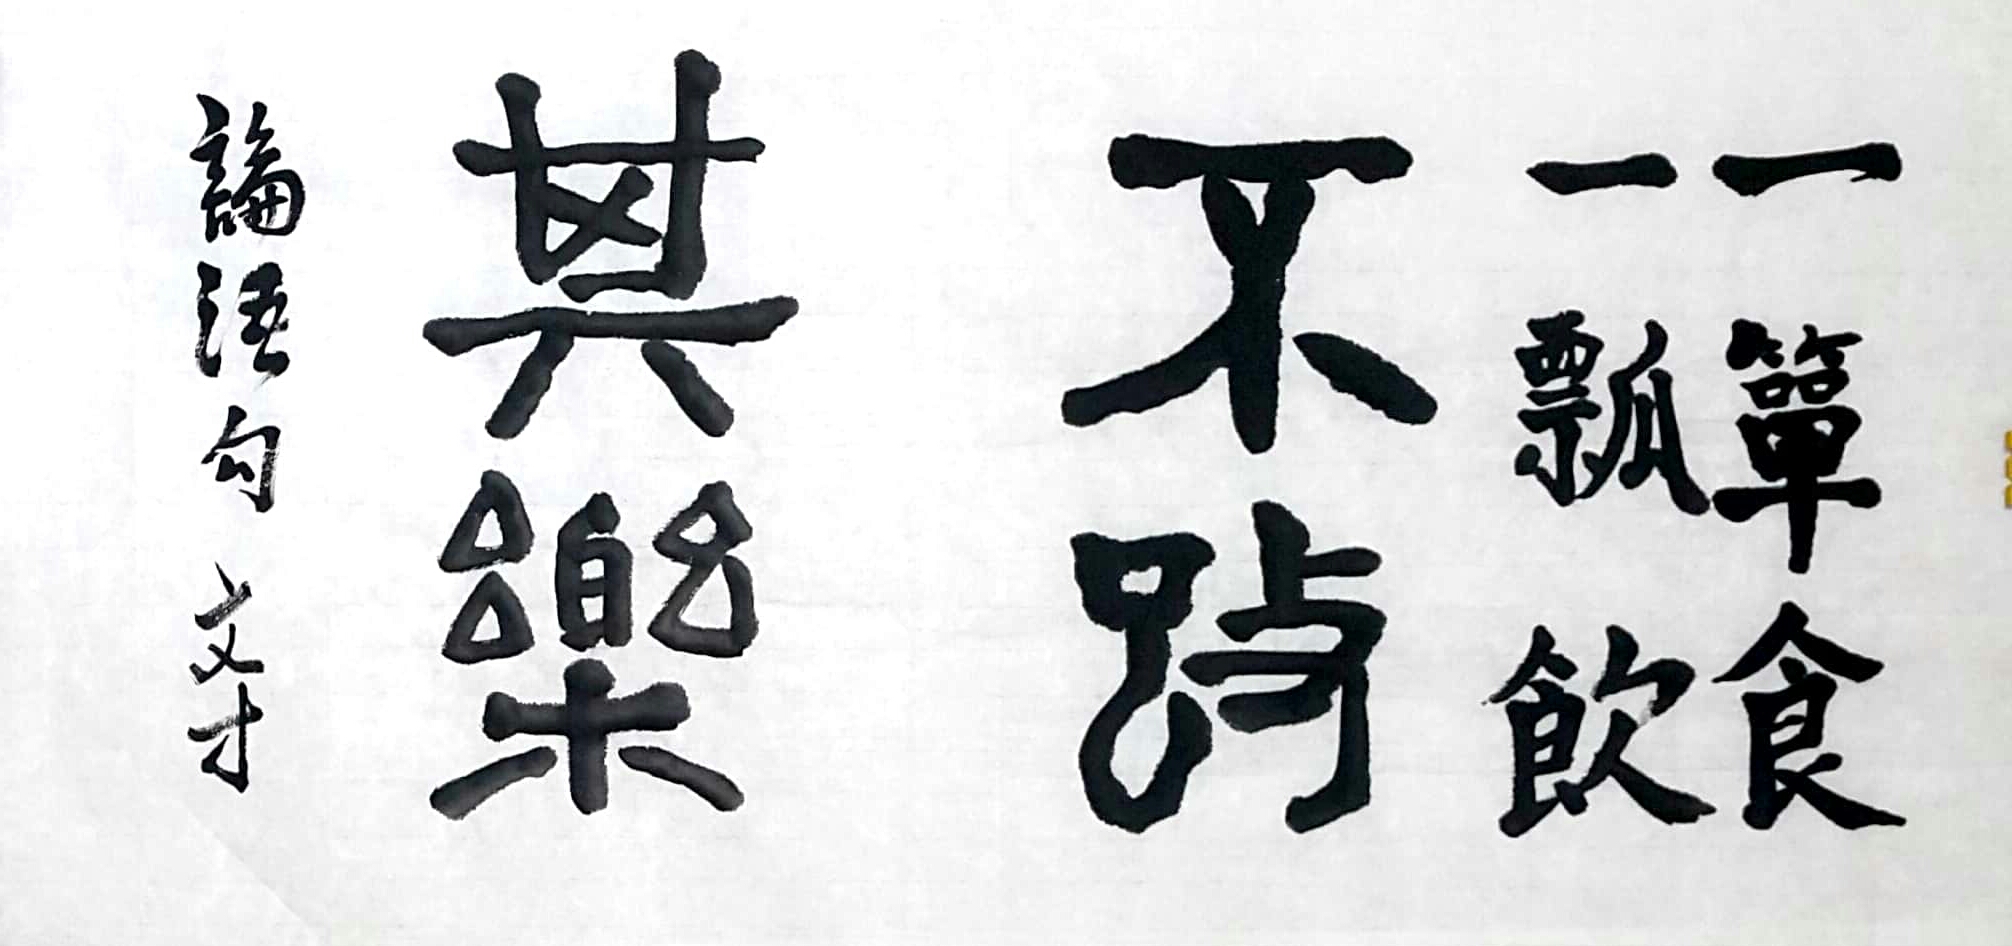 一簞食
一瓢飲
不改
其樂
論語句 文才